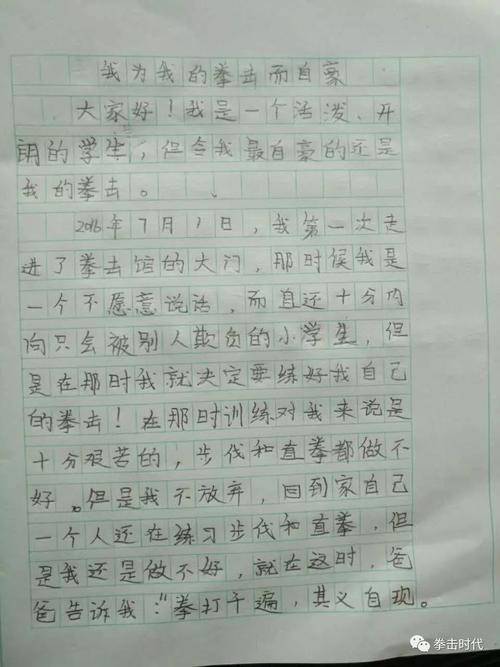 我为我的拳击而自豪
大家好！我是一个活泼、开
朗的学生，但令我最自豪的还是
我的拳击。
2016年7月1日，我第一次走
进了拳击馆的大门，那时候我是
一个不愿意说话，而且还十分内
向只会被别人欺负的小学生，但
是在那时我就决定要练好我自己
的拳击！在那时训练对我来说是
十分艰苦的，步伐和直拳都做不
好。但是我不放弃，回到家自己
一个人还在练习步伐和直拳，但
是我还是做不好，就在这时，爸
爸告诉我：“拳打千遍，其义自现。
拳击时代